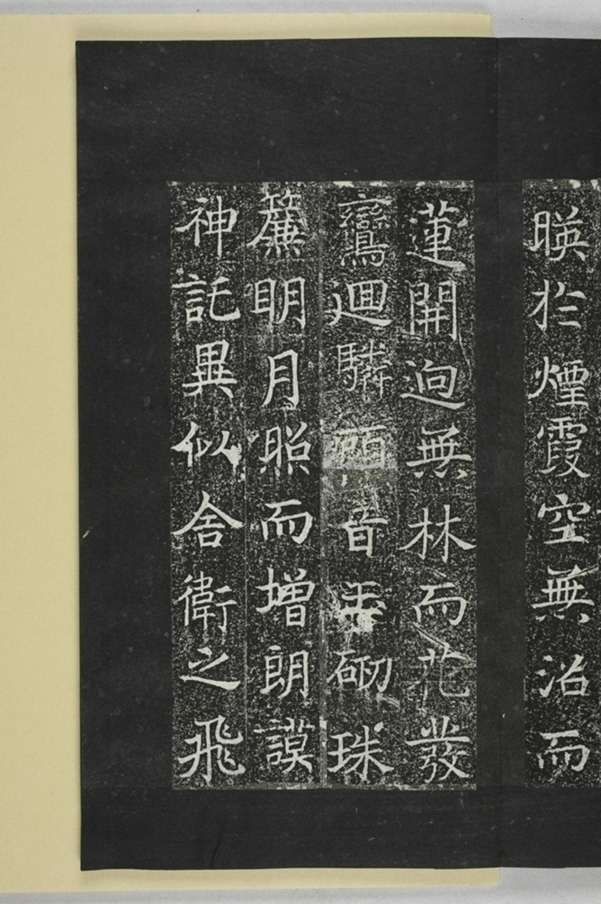 暎於煙霞空無治而
蓮開逈無林而花發
鸞迴驎顧玉砌珠
簾明月照而增朗謨
神託異似舍衛之飛